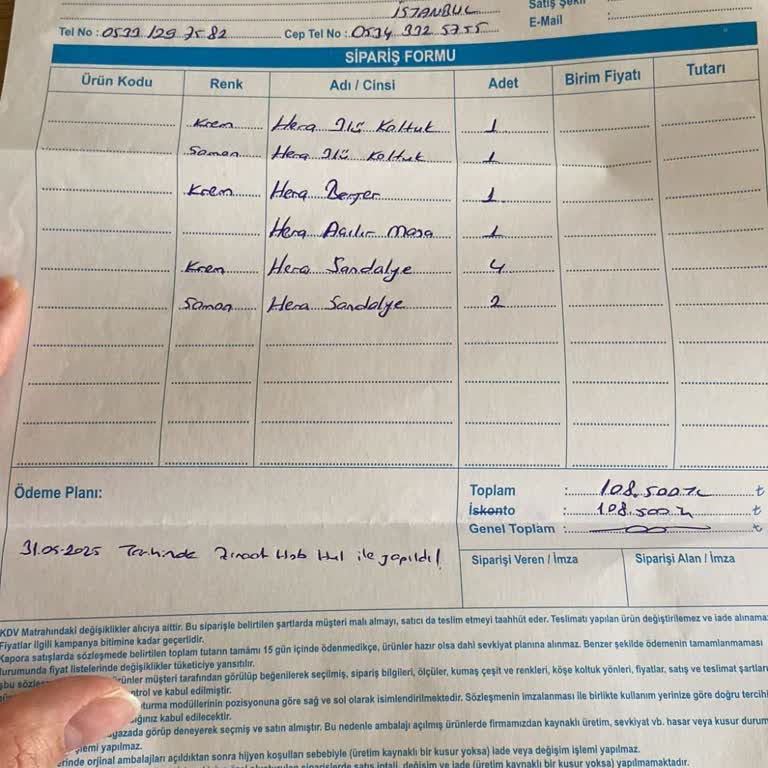 İSTANBUL
Satış Şekli :
Tel No : 0533 129 7582 Cep Tel No : 0534 332 5755 E-Mail :
SİPARİŞ FORMU
Ürün Kodu Renk Adı / Cinsi Adet Birim Fiyatı Tutarı
Krem Hera 3lü Koltuk 1
Saman Hera 3lü Koltuk 1
Krem Hera Berjer 1
Hera Açılır Masa 1
Krem Hera Sandalye 4
Saman Hera Sandalye 2
Ödeme Planı:
Toplam : 108.500 TL ₺
İskonto : 108.500 TL ₺
Genel Toplam : ₺
31.05.2025 Tarihinde Ziraat ile yapıldı!
Siparişi Veren / İmza Siparişi Alan / İmza
KDV Matrahındaki değişiklikler alıcıya aittir. Bu siparişle belirtilen şartlarda müşteri malı almayı, satıcı da teslim etmeyi taahhüt eder. Teslimatı yapılan ürün değiştirilemez ve iade alınamaz
Fiyatlar ilgili kampanya bitimine kadar geçerlidir.
Kapora satışlarda sözleşmede belirtilen toplam tutarın tamamı 15 gün içinde ödenmedikçe, ürünler hazır olsa dahi sevkiyat planına alınmaz. Benzer şekilde ödemenin tamamlanmaması
durumunda fiyat listelerinde değişiklikler tüketiciye yansıtılır.
ürünler müşteri tarafından görülüp beğenilerek seçilmiş, sipariş bilgileri, ölçüler, kumaş çeşit ve renkleri, köşe koltuk yönleri, fiyatlar, satış ve teslimat şartları
kontrol ve kabul edilmiştir.
oturma modüllerinin pozisyonuna göre sağ ve sol olarak isimlendirilmektedir. Sözleşmenin imzalanması ile birlikte kullanım yerinize göre doğru tercihi
kabul edilecektir.
görüp deneyerek seçmiş ve satın almıştır. Bu nedenle ambalajı açılmış ürünlerde firmamızdan kaynaklı üretim, sevkiyat vb. hasar veya kusur durum
işlemi yapılmaz.
orjinal ambalajları açıldıktan sonra hijyen koşulları sebebiyle (üretim kaynaklı bir kusur yoksa) iade veya değişim işlemi yapılmaz.
siparişlerde satış iptali, değişim ve iade (üretim kaynaklı bir kusur yoksa) yapılmamaktadır.